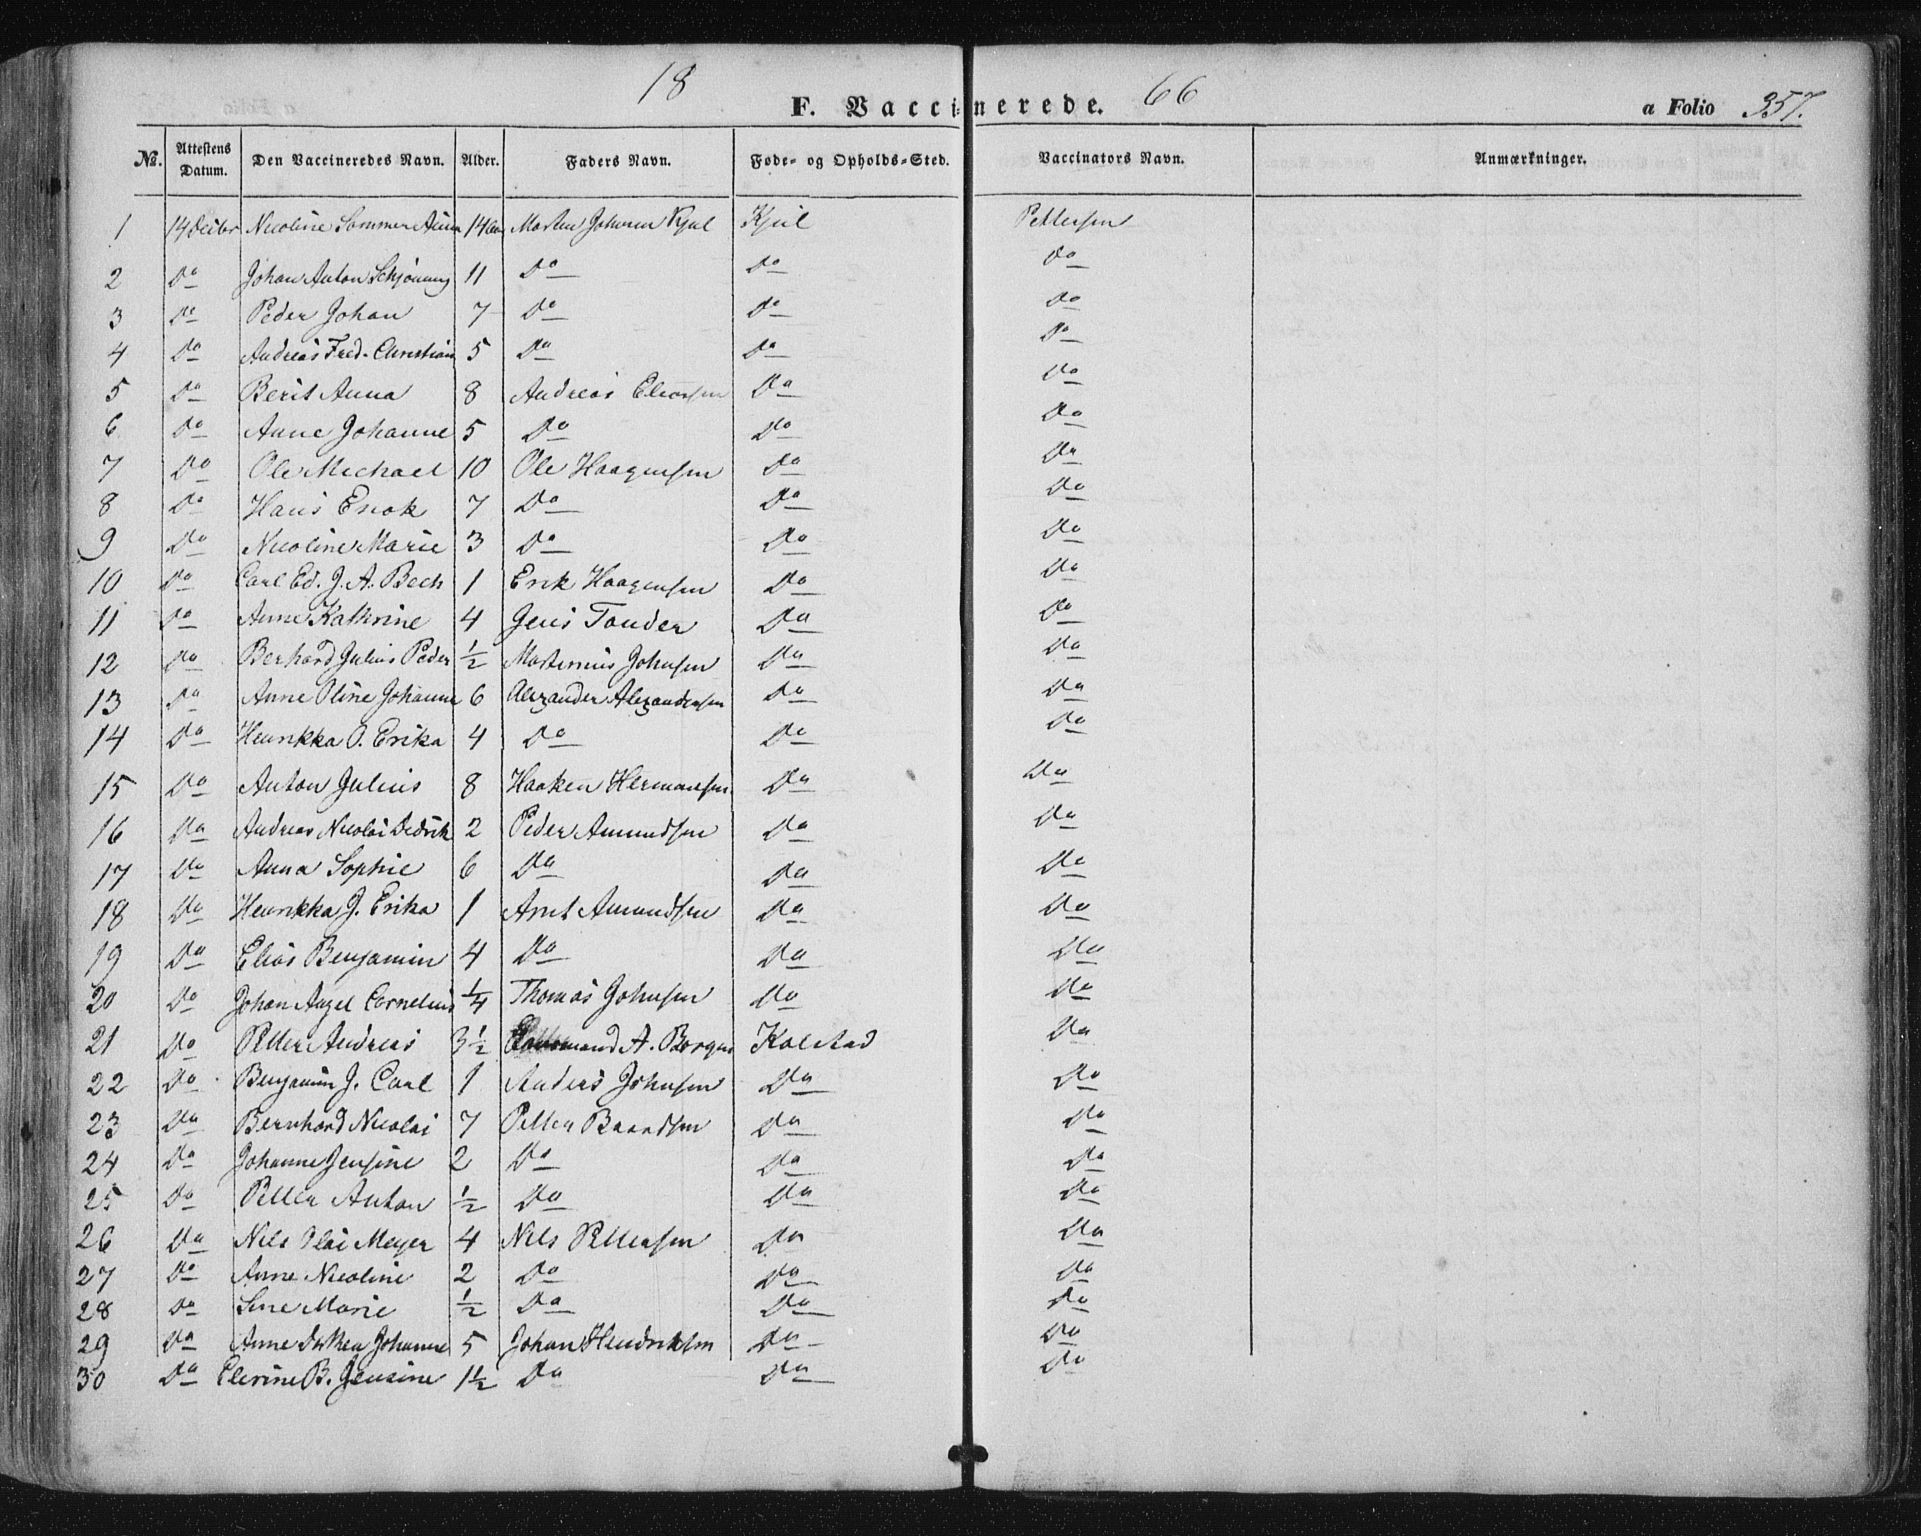 18 66
F. Vaccinerede. a Folio 357.
No. Attestens Datum. Den Vaccineredes Navn. Alder. Faders Navn. Føde- og Opholds-Sted. Vaccinators Navn. Anmærkninger.
1 14 Decbr Nicoline Sommer 14 Aar Morten Johnsen Kjul Kjul Pettersen
2 Do Johan Anton Schjønning 11 Do Do Do
3 Do Peder Johan 7 Do Do Do
4 Do Andreas Fred. Christian 5 Do Do Do
5 Do Berit Anna 8 Andreas Eliassen Do Do
6 Do Anne Johanne 5 Do Do Do
7 Do Ole Michael 10 Ole Haagensen Do Do
8 Do Hans Enok 7 Do Do Do
9 Do Nicoline Marie 3 Do Do Do
10 Do Carl Ed. J. A. Bech 1 Erik Haagensen Do Do
11 Do Anne Kathrine 4 Jens Tonder Do Do
12 Do Berhard Julius Peder ½ Martinius Johnsen Do Do
13 Do Anne Oline Johanne 6 Alexander Alexandersen Do Do
14 Do Henrikka O. Erika 4 Do Do Do
15 Do Anton Julius 8 Haaken Hermansen Do Do
16 Do Andreas Nicolai Dedrik 2 Peder Amundsen Do Do
17 Do Anna Sophie 6 Do Do Do
18 Do Henrikka J. Erika 1 Arnt Amundsen Do Do
19 Do Elias Benjamin 4 Do Do Do
20 Do Johan Angel Cornelius ¼ Thomas Johnsen Do Do
21 Do Petter Andreas 3½ A. Kolstad Do
22 Do Benjamin J. Carl 1 Anders Johnsen Do Do
23 Do Bernhard Nicolai 7 Petter Baardsen Do Do
24 Do Johanne Jensine 2 Do Do Do
25 Do Petter Anton ½ Do Do Do
26 Do Nils Olai Meyer 4 Nils Pettersen Do Do
27 Do Anne Nicoline 2 Do Do Do
28 Do Sine Marie ½ Do Do Do
29 Do Anne Johanne 5 Johan Hendriksen Do Do
30 Do Elerine B. Jensine 1½ Do Do Do